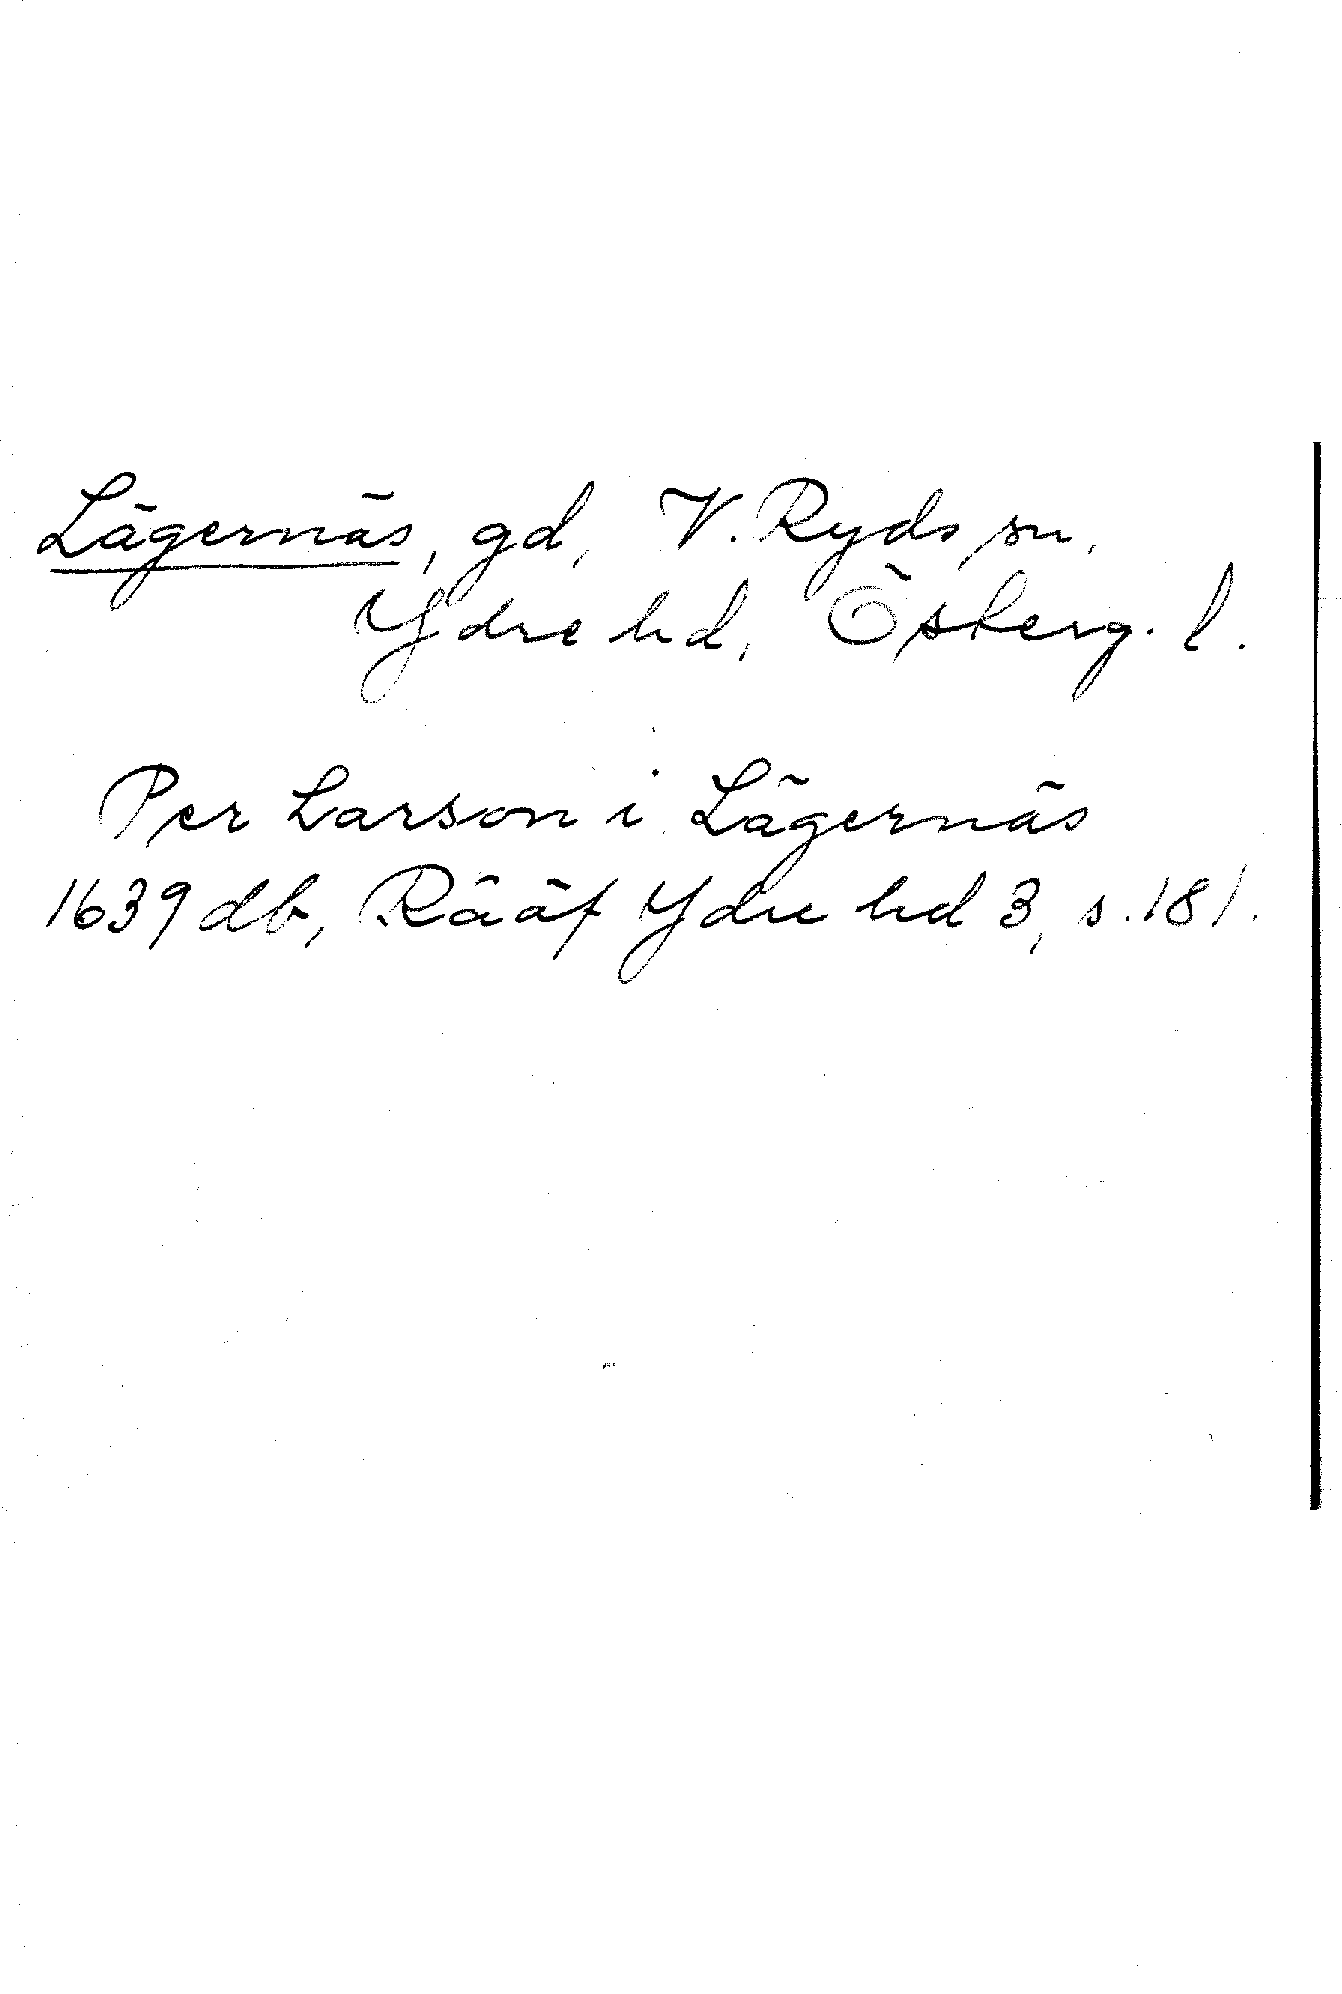 Lägernäs, gd, V. Ryds sn,
Ydre hd, Österg. l.
Per Larson i Lägernäs
1639 db, Rääf Ydre hd 3, s. 181.